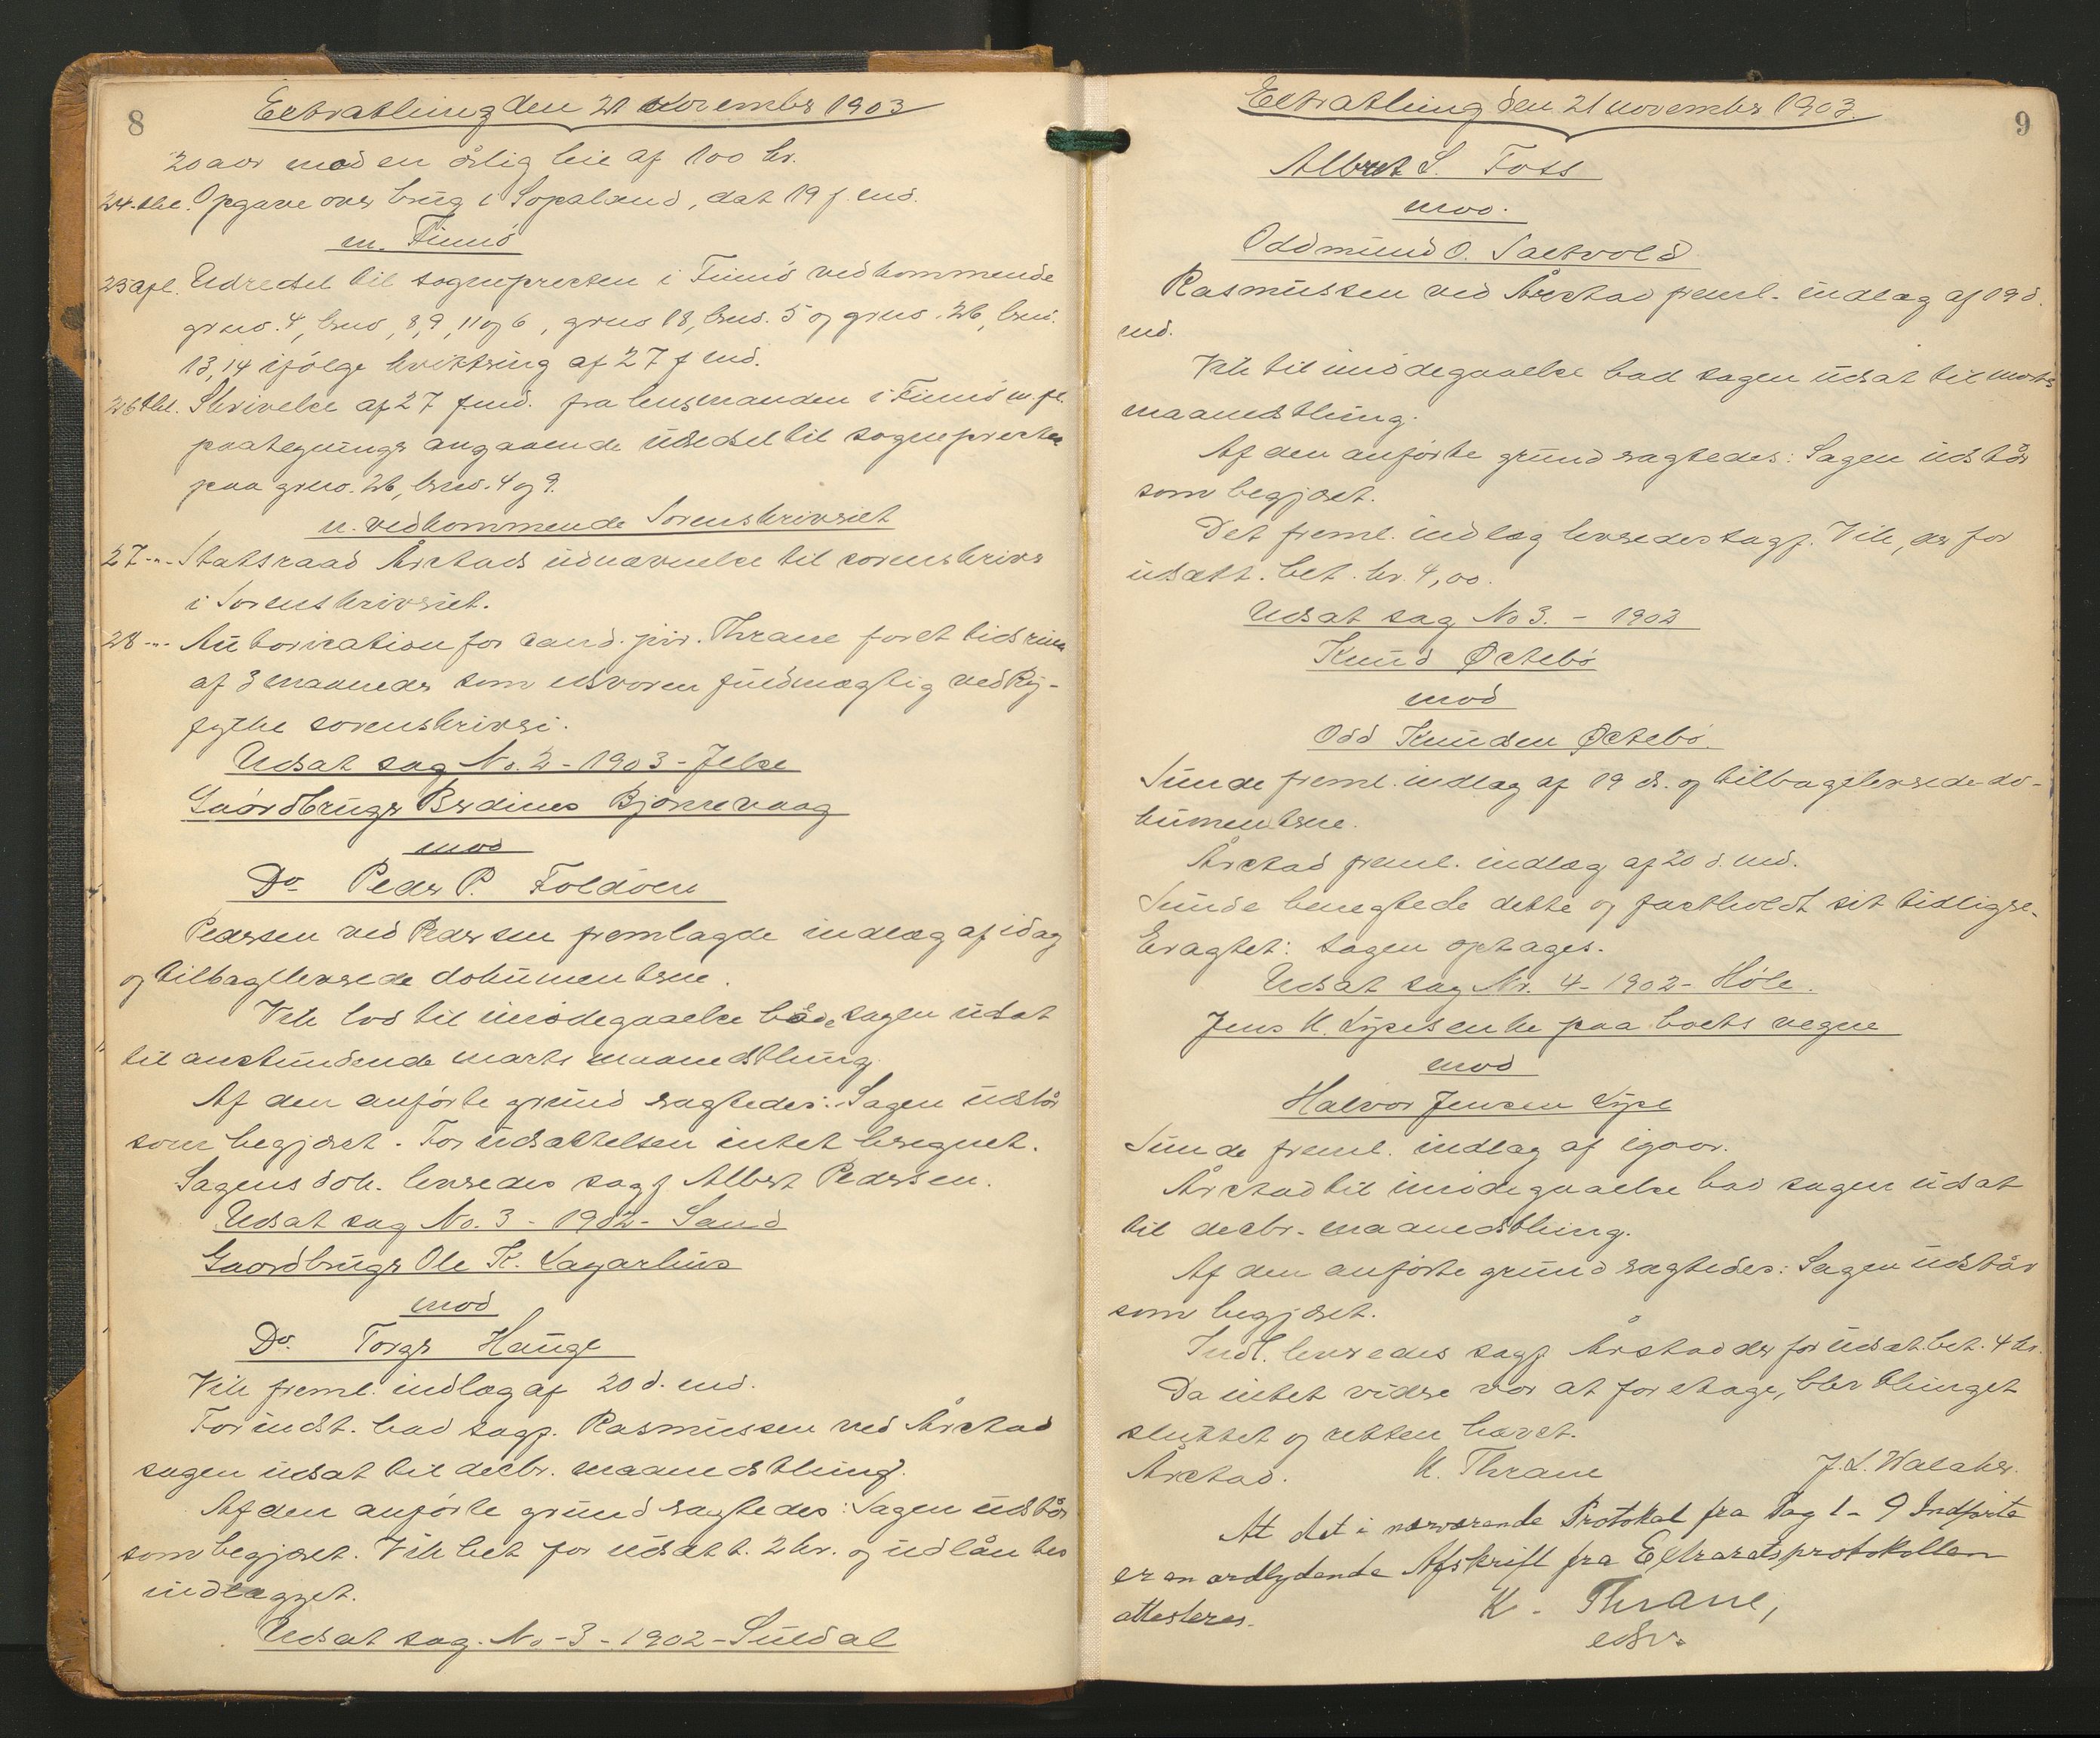 8
Extrathing den 21 November 1903
20 aar mod en årlig leie af 100 kr.
24. thl. Opgave over brug i Sopeland, dat 19 f. md.
m. Finnö
25 afl. Udredsel til sognepresten i Finnö vedkommende
grno. 4, brno, 8, 9, 11 og 6, grno 18, brno. 5 og grno. 26, brno.
13, 14 ifölge kvittering af 27 f md.
26 thl. Skrivelse af 27 f md. fra lensmanden i Finnö m. fl.
paategninger angaaende udredsel til sognepresten
paa grno. 26, brno. 4 og 9.
n. vedkommende Sorenskriveriet
27 -"- Statsraad Årstads udnævnelse til sorenskriver
i Sorenskriveriet.
28 -"- Autorisation for cand. jur. Thrane for et tidsrum
af 3 maaneder som edsvoren fuldmægtig ved Ry-
fylke sorenskriveri.
Udsat sag No. 2 - 1903 - Jelse
Gaardbruger Berdines Bjørnevaag
mod
Do Peder P. Foldöen
Pedersen ved Pedersen fremlagde indlæg af idag
og tilbageleverede dokumenterne.
Vik lod til imødegaaelse bade sagen udsat
til anstundende marts maanedsthing.
Af den anförte grund vagtedes: Sagen udstår
som begjæret. For udsættelsen intet beregnet.
Sagens dok. leveredes sagf Albert Pedersen.
Udsat sag No. 3 - 1902 - Sand
Gaardbruger Ole K. Lagarhus
mod
Do. Torger Hauge
Vik freml. indlæg af 20 d. md.
For indst. bad sagf. Rasmussen ved Årstad
sagen udsat til decbr. maanedsthing.
Af den anförte grund vagtedes: Sagen udstår
som begjæret. Vik bet for udsætt. 2 kr. og udlåntes
indlægget.
Udsat sag. No - 3 - 1902 - Suldal
Extrathing den 21 november 1903.
9
Albert S. Foss
mod.
Oddmund O. Sætvold
Rasmussen ved Årstad freml. indlæg af 19 d.
md.
Vik til imødegaaelse bad sagen udsat til marts
maanedsthing.
Af den anförte grund vagtedes: Sagen udstår
som begjæret.
Det freml. indlæg leveredes sagf. Vik, der for
udsætt. bet. kr. 4,00.
Udsat sag No 3. - 1902
Knud Østebö
mod
Odd Knudsen Østebö.
Sunde freml. indlæg af 19 ds. og tilbageleverede do-
kumenterne.
Årstad freml. indlæg af 20 d. md.
Sunde benegtede dette og fastholdt sit tidligere.
Eragtet: Sagen optages.
Udsat sag Nr. 4 - 1902 - Höle.
Jens K. Lyses enke paa boets vegne
mod
Halvor Jensen Lyse
Sunde freml. indlæg af igaar.
Årstad til imødegaaelse bad sagen udsat
til decbr. maanedsthing.
Af den anförte grund vagtedes: Sagen udstår
som begjæret.
Indl. leveredes sagf Årstad der for udsæt. bet. 4 kr.
Da intet videre var at foretage, blev thinget
sluttet og retten hævet.
Årstad. K. Thrane J. L. Walaker.
At det i nærværende Protokol fra Pag 1 - 9 Indförte
er en ordlydende Afskrift fra Extraretsprotokollen
attesteres.
K. Thrane,
edsv.